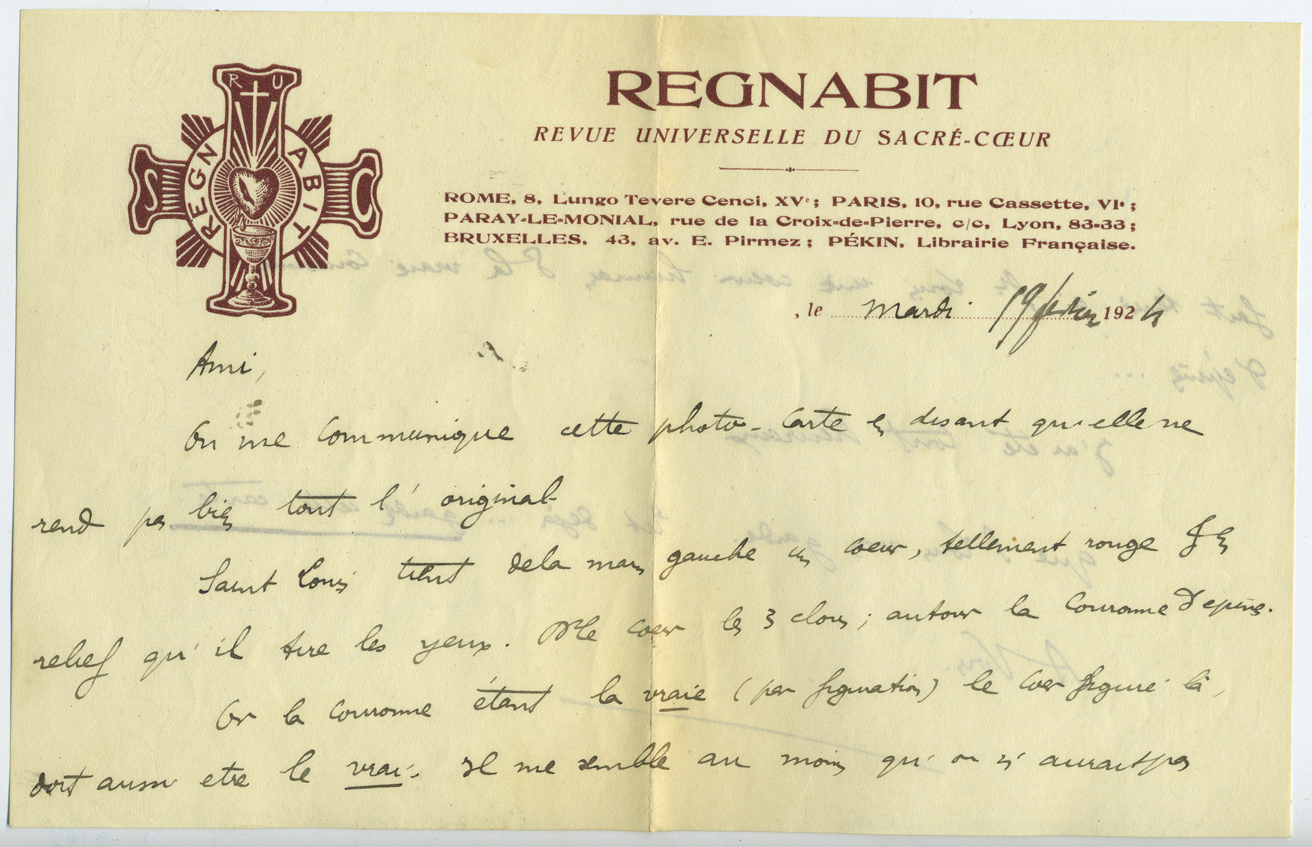 R U
REGNABIT
S C
REGNABIT
REVUE UNIVERSELLE DU SACRÉ-CŒUR
ROME, 8, Lungo Tevere Cenci, XVe; PARIS, 10, rue Cassette, VIe;
PARAY-LE-MONIAL, rue de la Croix-de-Pierre, c/c, Lyon, 83-33;
BRUXELLES, 43, av. E. Pirmez; PÉKIN, Librairie Française.
, le mardi 19 février 1924
Ami,
On me communique cette photo-carte en disant qu'elle ne
rend pas bien tout l'original.
Saint Louis tient de la main gauche un coeur, tellement rouge & en
relief qu'il tire les yeux. Ds le coeur les 3 clous; autour la couronne d'épines.
Or la couronne étant la vraie (par figuration) le coeur figuré là,
doit aussi etre le vrai. Il me semble au moins qu'on n'aurait pas